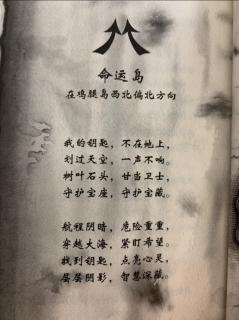 命运岛
在鸡腿岛西北偏北方向
我的钥匙，不在地上，
划过天空，一声不响。
树叶石头，甘当卫士，
守护宝座，守护宝藏。
航程阴暗，危险重重，
穿越大海，紧盯希望。
找到钥匙，点亮心灵，
层层阴影，智慧深藏。